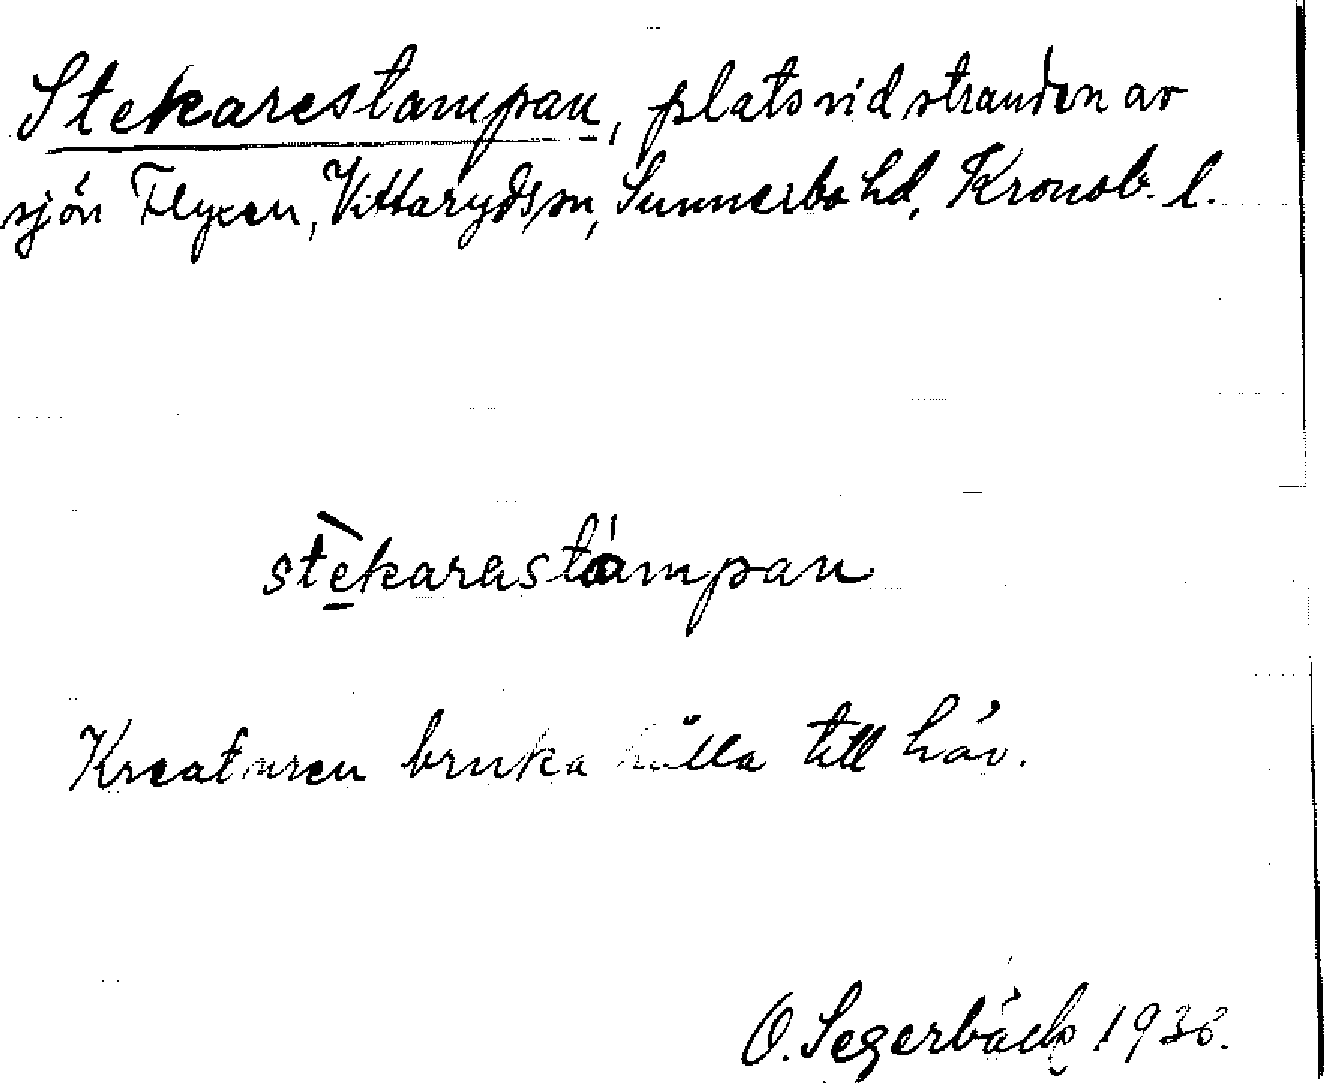 Stekarestampan, plats vid stranden av
sjön Flyxen, Vittaryds sn, Sunnerbo hd, Kronob. l.
stèkarastámpan
Kreaturen bruka hålla till häv.
O. Segerbäck 1938.